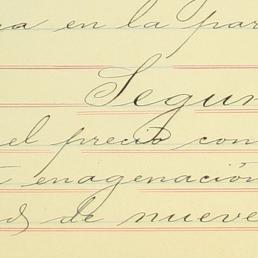 en la par
Segun
el precio con
enagenación
de nueve